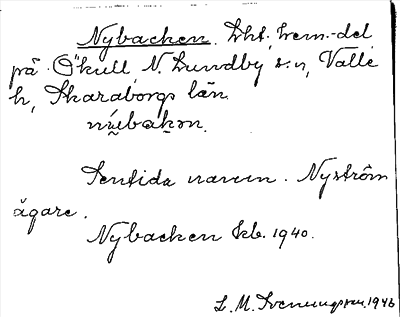 Nybacken. Lht, hem.-del
på Ökull, N. Lundby s:n, Valle
h, Skaraborgs län.
nýbakən.
Sentida namn. Nyström
ägare.
Nybacken kb. 1940.
L. M. Svenungsson 1946